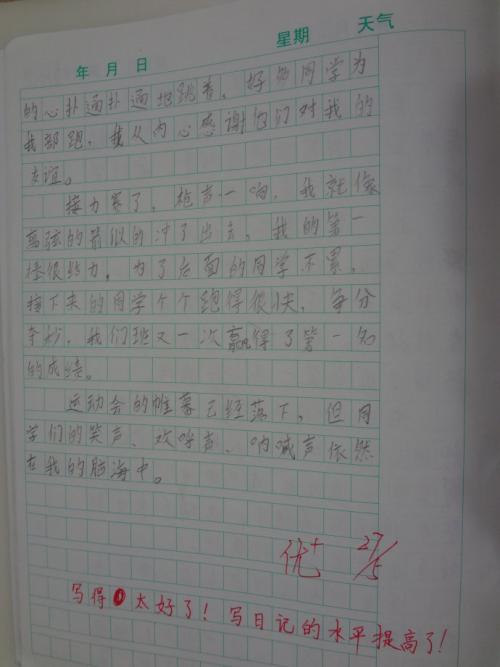 年 月 日 星期 天气
的心扑通扑通地跳着，好多同学为
我部跑，我从内心感谢他们对我的
友谊。
接力赛了，枪声一响，我就像
离弦的箭似的冲了出去，我的第一
棒很努力，为了后面的同学不累，
接下来的同学个个跑得很快，每分
夺妙，我们班又一次赢得了第一名
的成绩。
运动会的帷幕已经落下，但同
学们的笑声、欢呼声、呐喊声依然
在我的脑海中。
优+ 27/5
写得太好了！写日记的水平提高了！